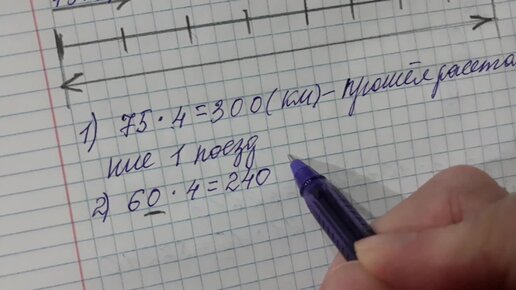 1) 75 · 4 = 300 (км) – прошёл расстоя
ние 1 поезд
2) 60 · 4 = 240